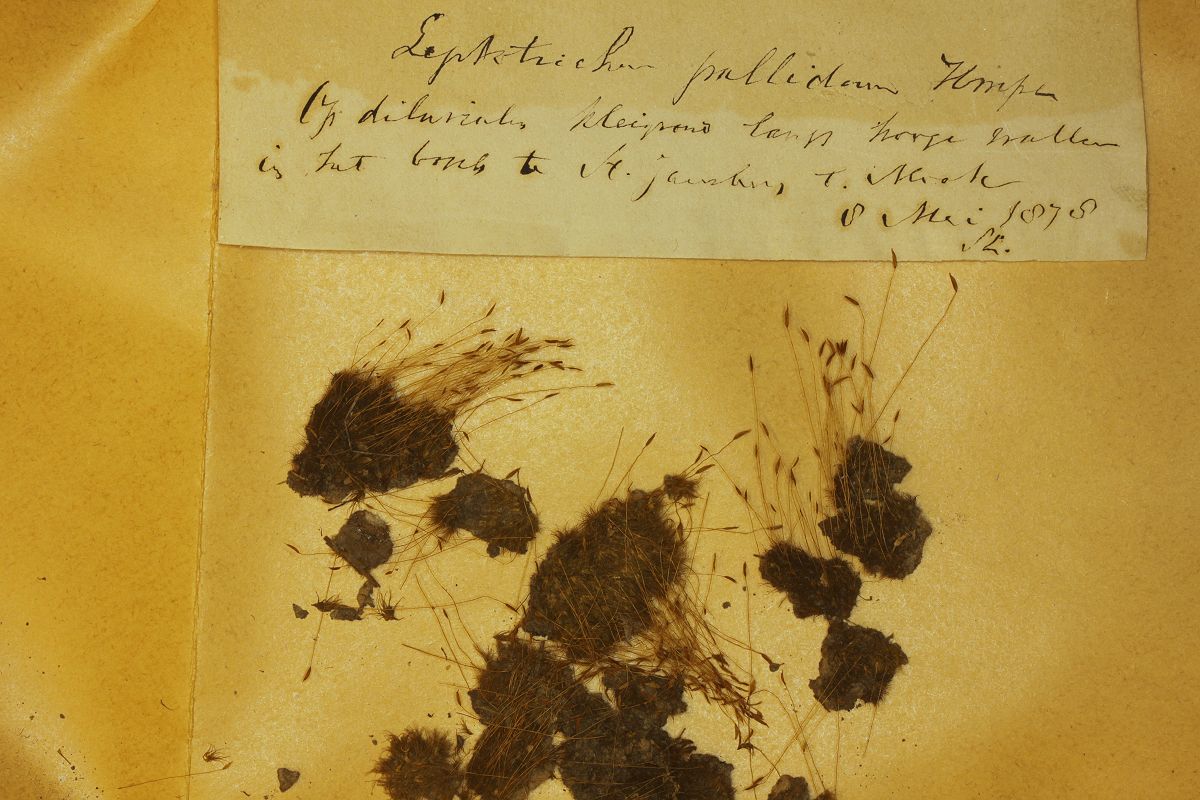 Leptotrichum pallidum Hampe
Op diluvialen kleigrond langs hooge wallen
in het bosch te St. Jansberg b. Mook
8 Mei 1878